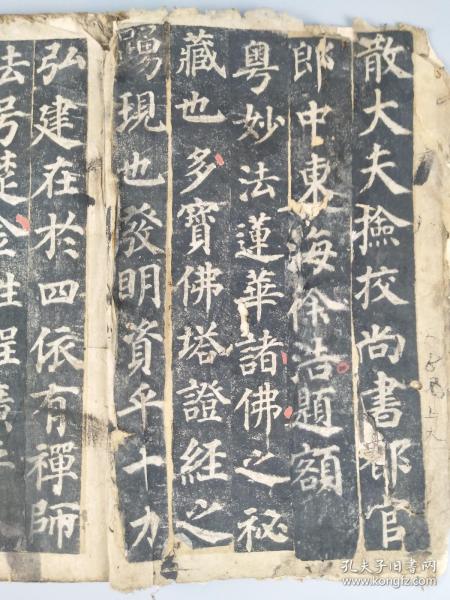 散大夫撿挍尚書都官
郎中東海徐浩題額
粵妙法蓮華諸佛之秘
藏也多寶佛塔證經之
踴現也發明資乎十力
弘建在於四依有禪師
法号楚金姓程廣平
孔夫子旧书网
www.kongfz.com